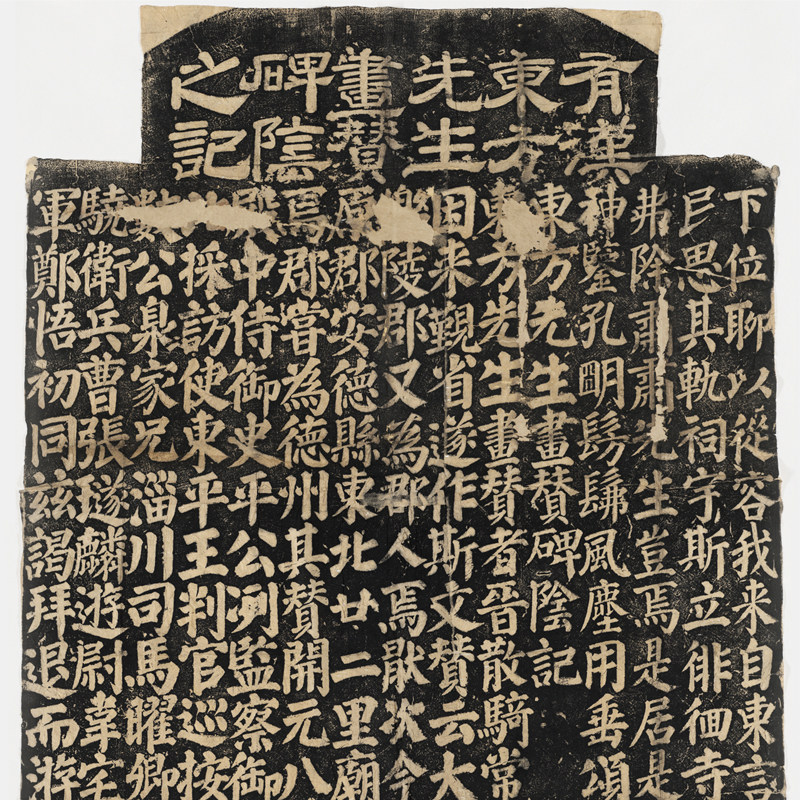 有漢
東方
先生
畫贊
碑陰
之記
下位聊以從容我来自東言
民思其軌祠宇斯立徘徊寺
弗除肅肅先生豈焉是居是
神鑒孔明髣髴風塵用垂頌
東方先生畫贊碑陰記
東方先生畫贊者晉散騎常
因来覲省遂作斯文贊云大
樂陵郡又為郡人焉猒次今
郡安德縣東北廿二里廟
焉郡嘗為德州其贊開元八
殿中侍御史平公冽監察御
採訪使東平王判官巡按
數公泉家兄淄川司馬曜卿
驍衛兵曹張璲麟遊尉韋宅
軍鄭悟初同兹謁拜退而游